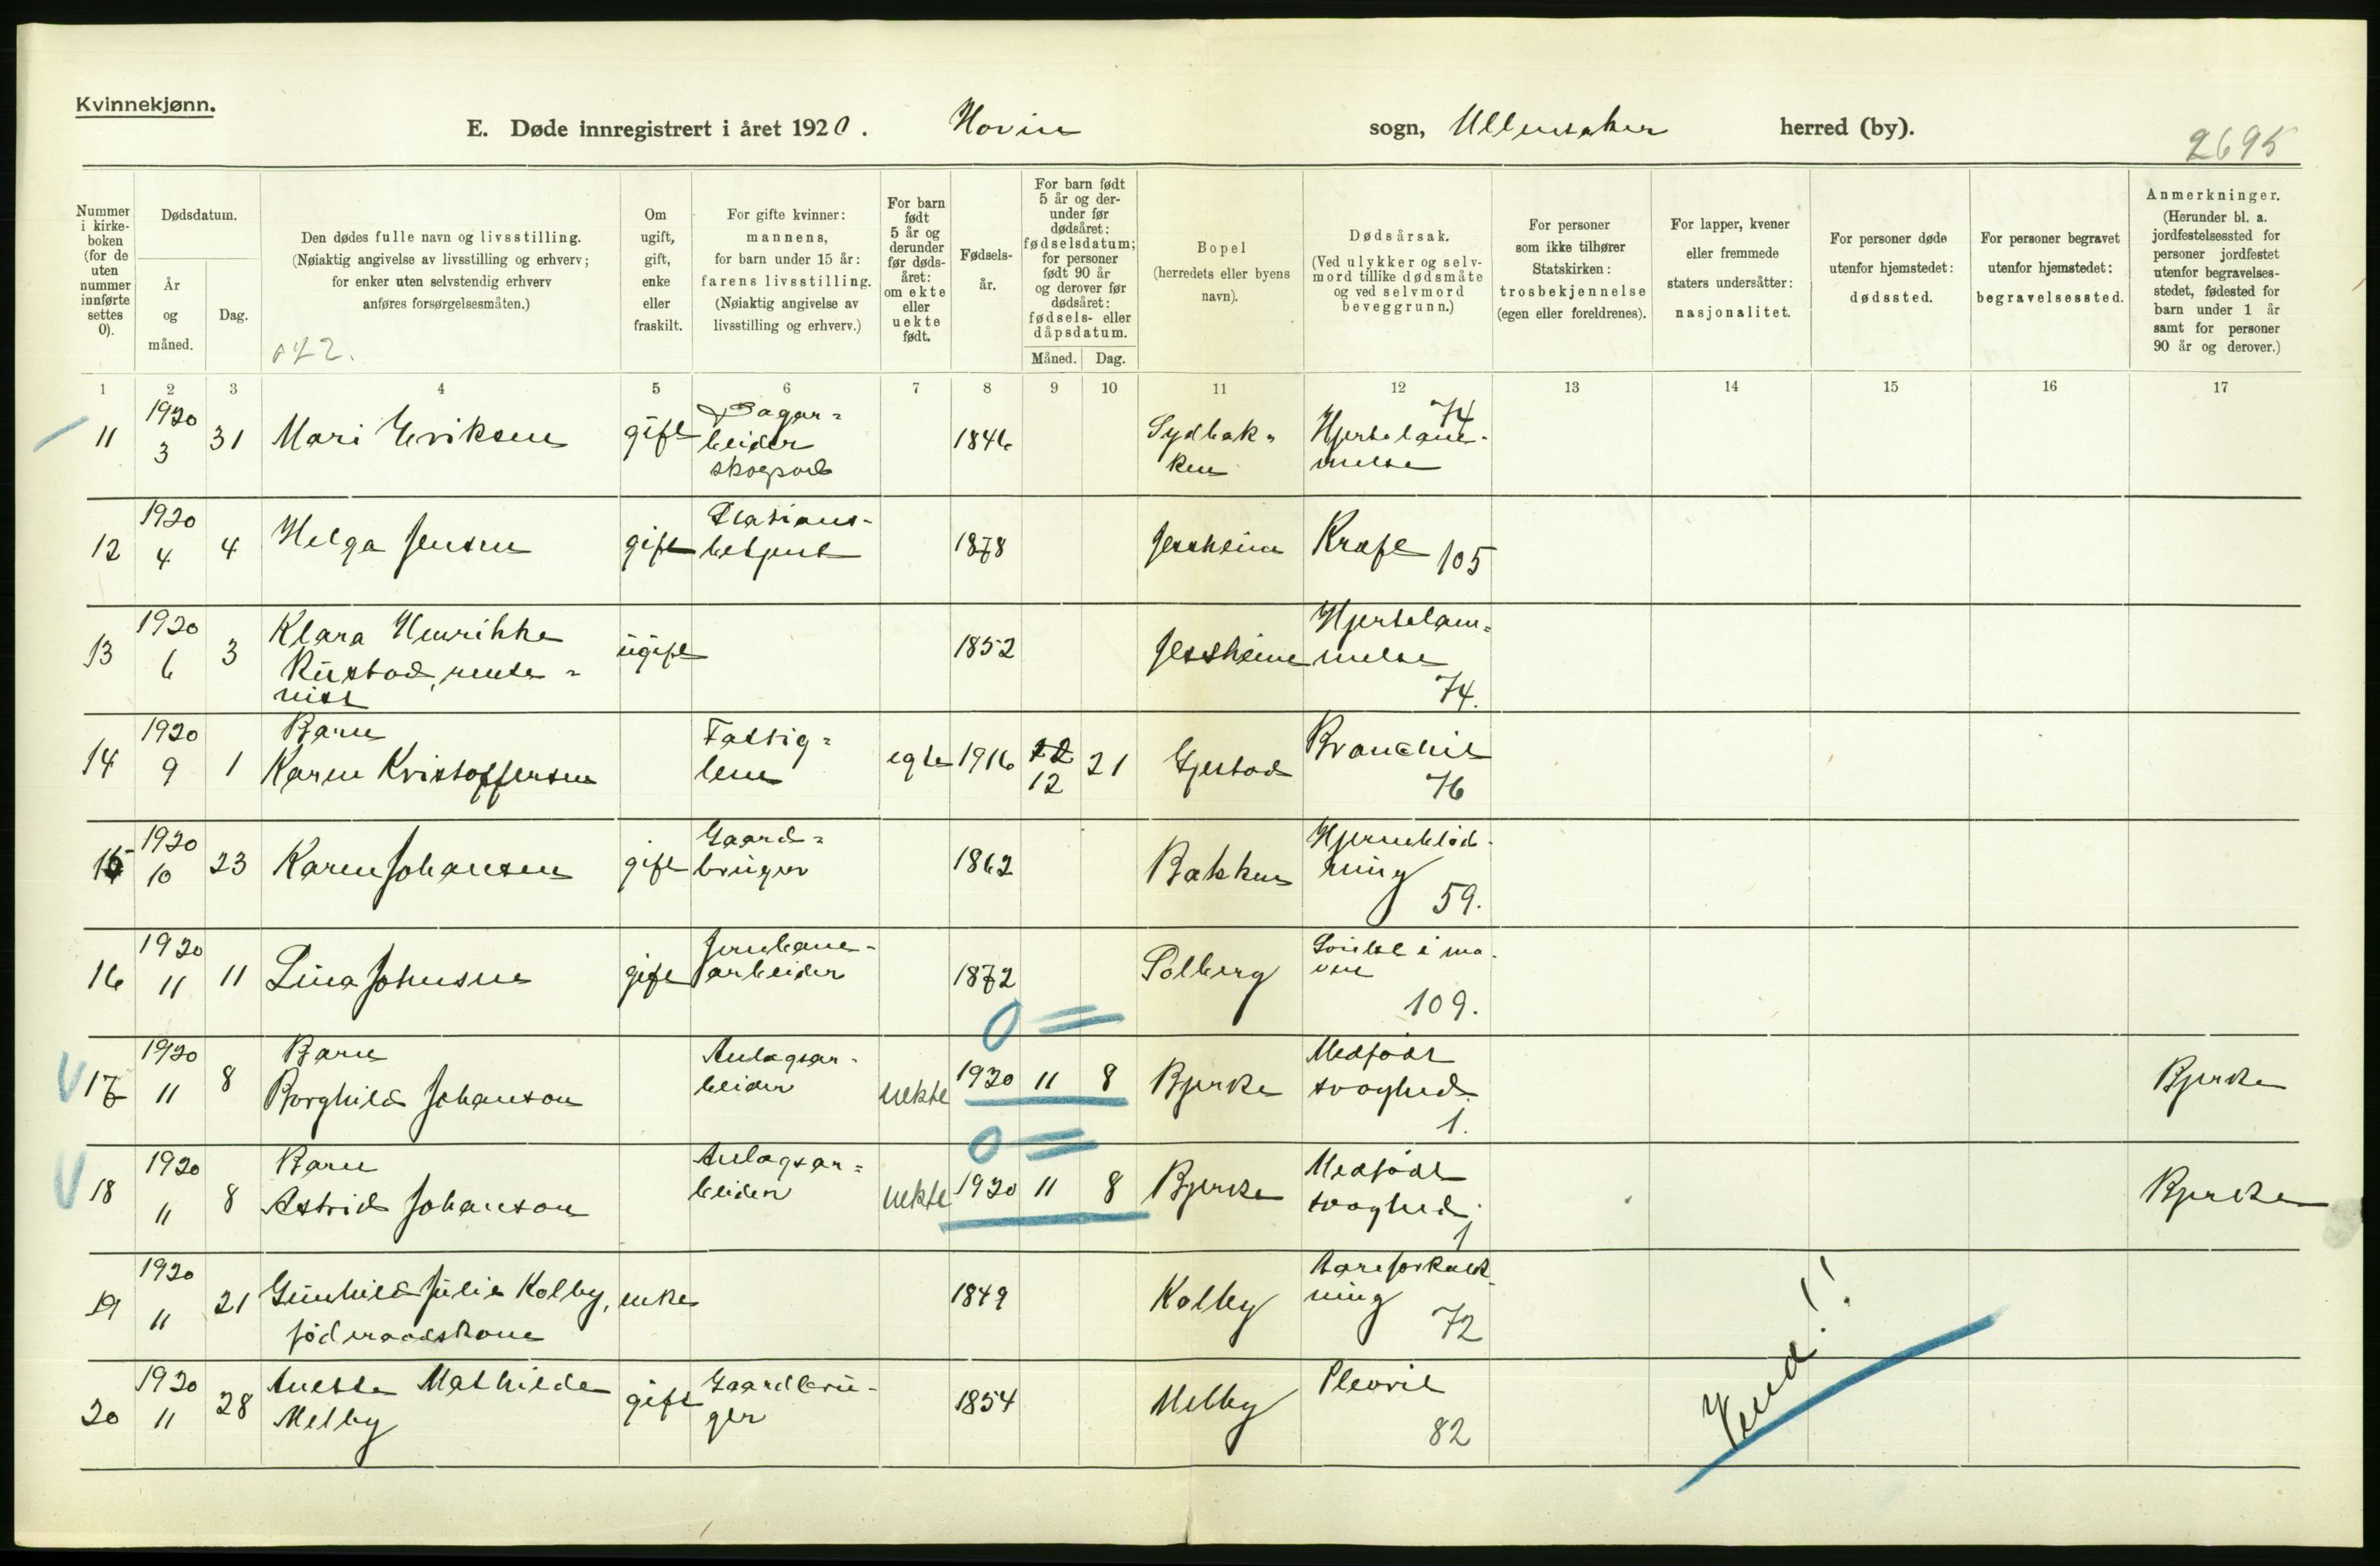 Kvinnekjønn.
E. Døde innregistrert i året 1920. Hovin sogn, Ullensaker herred (by).
2695
Nummer i kirke-boken (for de uten nummer innførte settes 0).
Dødsdatum.
År og måned.
Dag.
Den dødes fulle navn og livsstilling.
(Nøiaktig angivelse av livsstilling og erhverv;
for enker uten selvstendig erhverv
anføres forsørgelsesmåten.)
Om ugift, gift, enke eller fraskilt.
For gifte kvinner: mannens, for barn under 15 år: farens livsstilling. (Nøiaktig angivelse av livsstilling og erhverv.)
For barn født 5 år og derunder før døds-året: om ekte eller uekte født.
Fødsels-år.
For barn født 5 år og der-under før dødsåret: fødselsdatum; for personer født 90 år og derover før dødsåret: fødsels- eller dåpsdatum.
Måned. Dag.
Bopel (herredets eller byens navn).
Dødsårsak. (Ved ulykker og selv-mord tillike dødsmåte og ved selvmord beveggrunn.)
For personer som ikke tilhører Statskirken: trosbekjennelse (egen eller foreldrenes).
For lapper, kvener eller fremmede staters undersåtter: nasjonalitet.
For personer døde utenfor hjemstedet: dødssted.
For personer begravet utenfor hjemstedet: begravelsessted.
Anmerkninger. (Herunder bl. a. jordfestelsessted for personer jordfestet utenfor begravelses-stedet, fødested for barn under 1 år samt for personer 90 år og derover.)
1 2 3 4 5 6 7 8 9 10 11 12 13 14 15 16 17
11 1920 3 31 Mari Eriksen gift Dagar=beider skogsarb 1846 Sydbak=ken Hjertelam-melse 74
12 1920 4 4 Helga Jensen gift Stasions-betjent 1878 Jessheim Kræft 105
13 1920 6 3 Klara Henrikke Rustad, rente=nist ugift 1852 Jessheim Hjertelam=melse 74.
14 1920 9 1 Barn Karen Kristoffersen Fattig=lem egte 1916 12 12 21 Gjestad Bronchit 76
15 1920 10 23 Karen Johansen gift Gaard=bruger 1862 Bakken Hjerneblød-ning 59.
16 1920 11 11 Lina Johnsen gift Jernbane-arbeider 1872 Solberg Svulst i ma-ven 109.
0 =
17 1920 11 8 Barn Borghild Johanson Anlagsar-beider uekte 1920 11 8 Bjerke Medfødt svaghed 1. Bjerke
0 =
18 1920 11 8 Barn Astrid Johanson Anlagsar=beider uekte 1920 11 8 Bjerke Medfødt svaghed. 1 Bjerke
19 1920 11 21 Gunhild Julie Kolby, føderaadskone enke 1849 Kolby Aareforkalk-ning 72
20 1920 11 28 Anette Mathilde Melby gift Gaardbru-ger 1854 Melby Plevrit 82
Vend!!